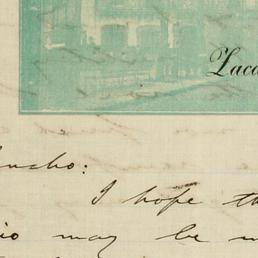 Laca
ncho:
I hope th
io may be